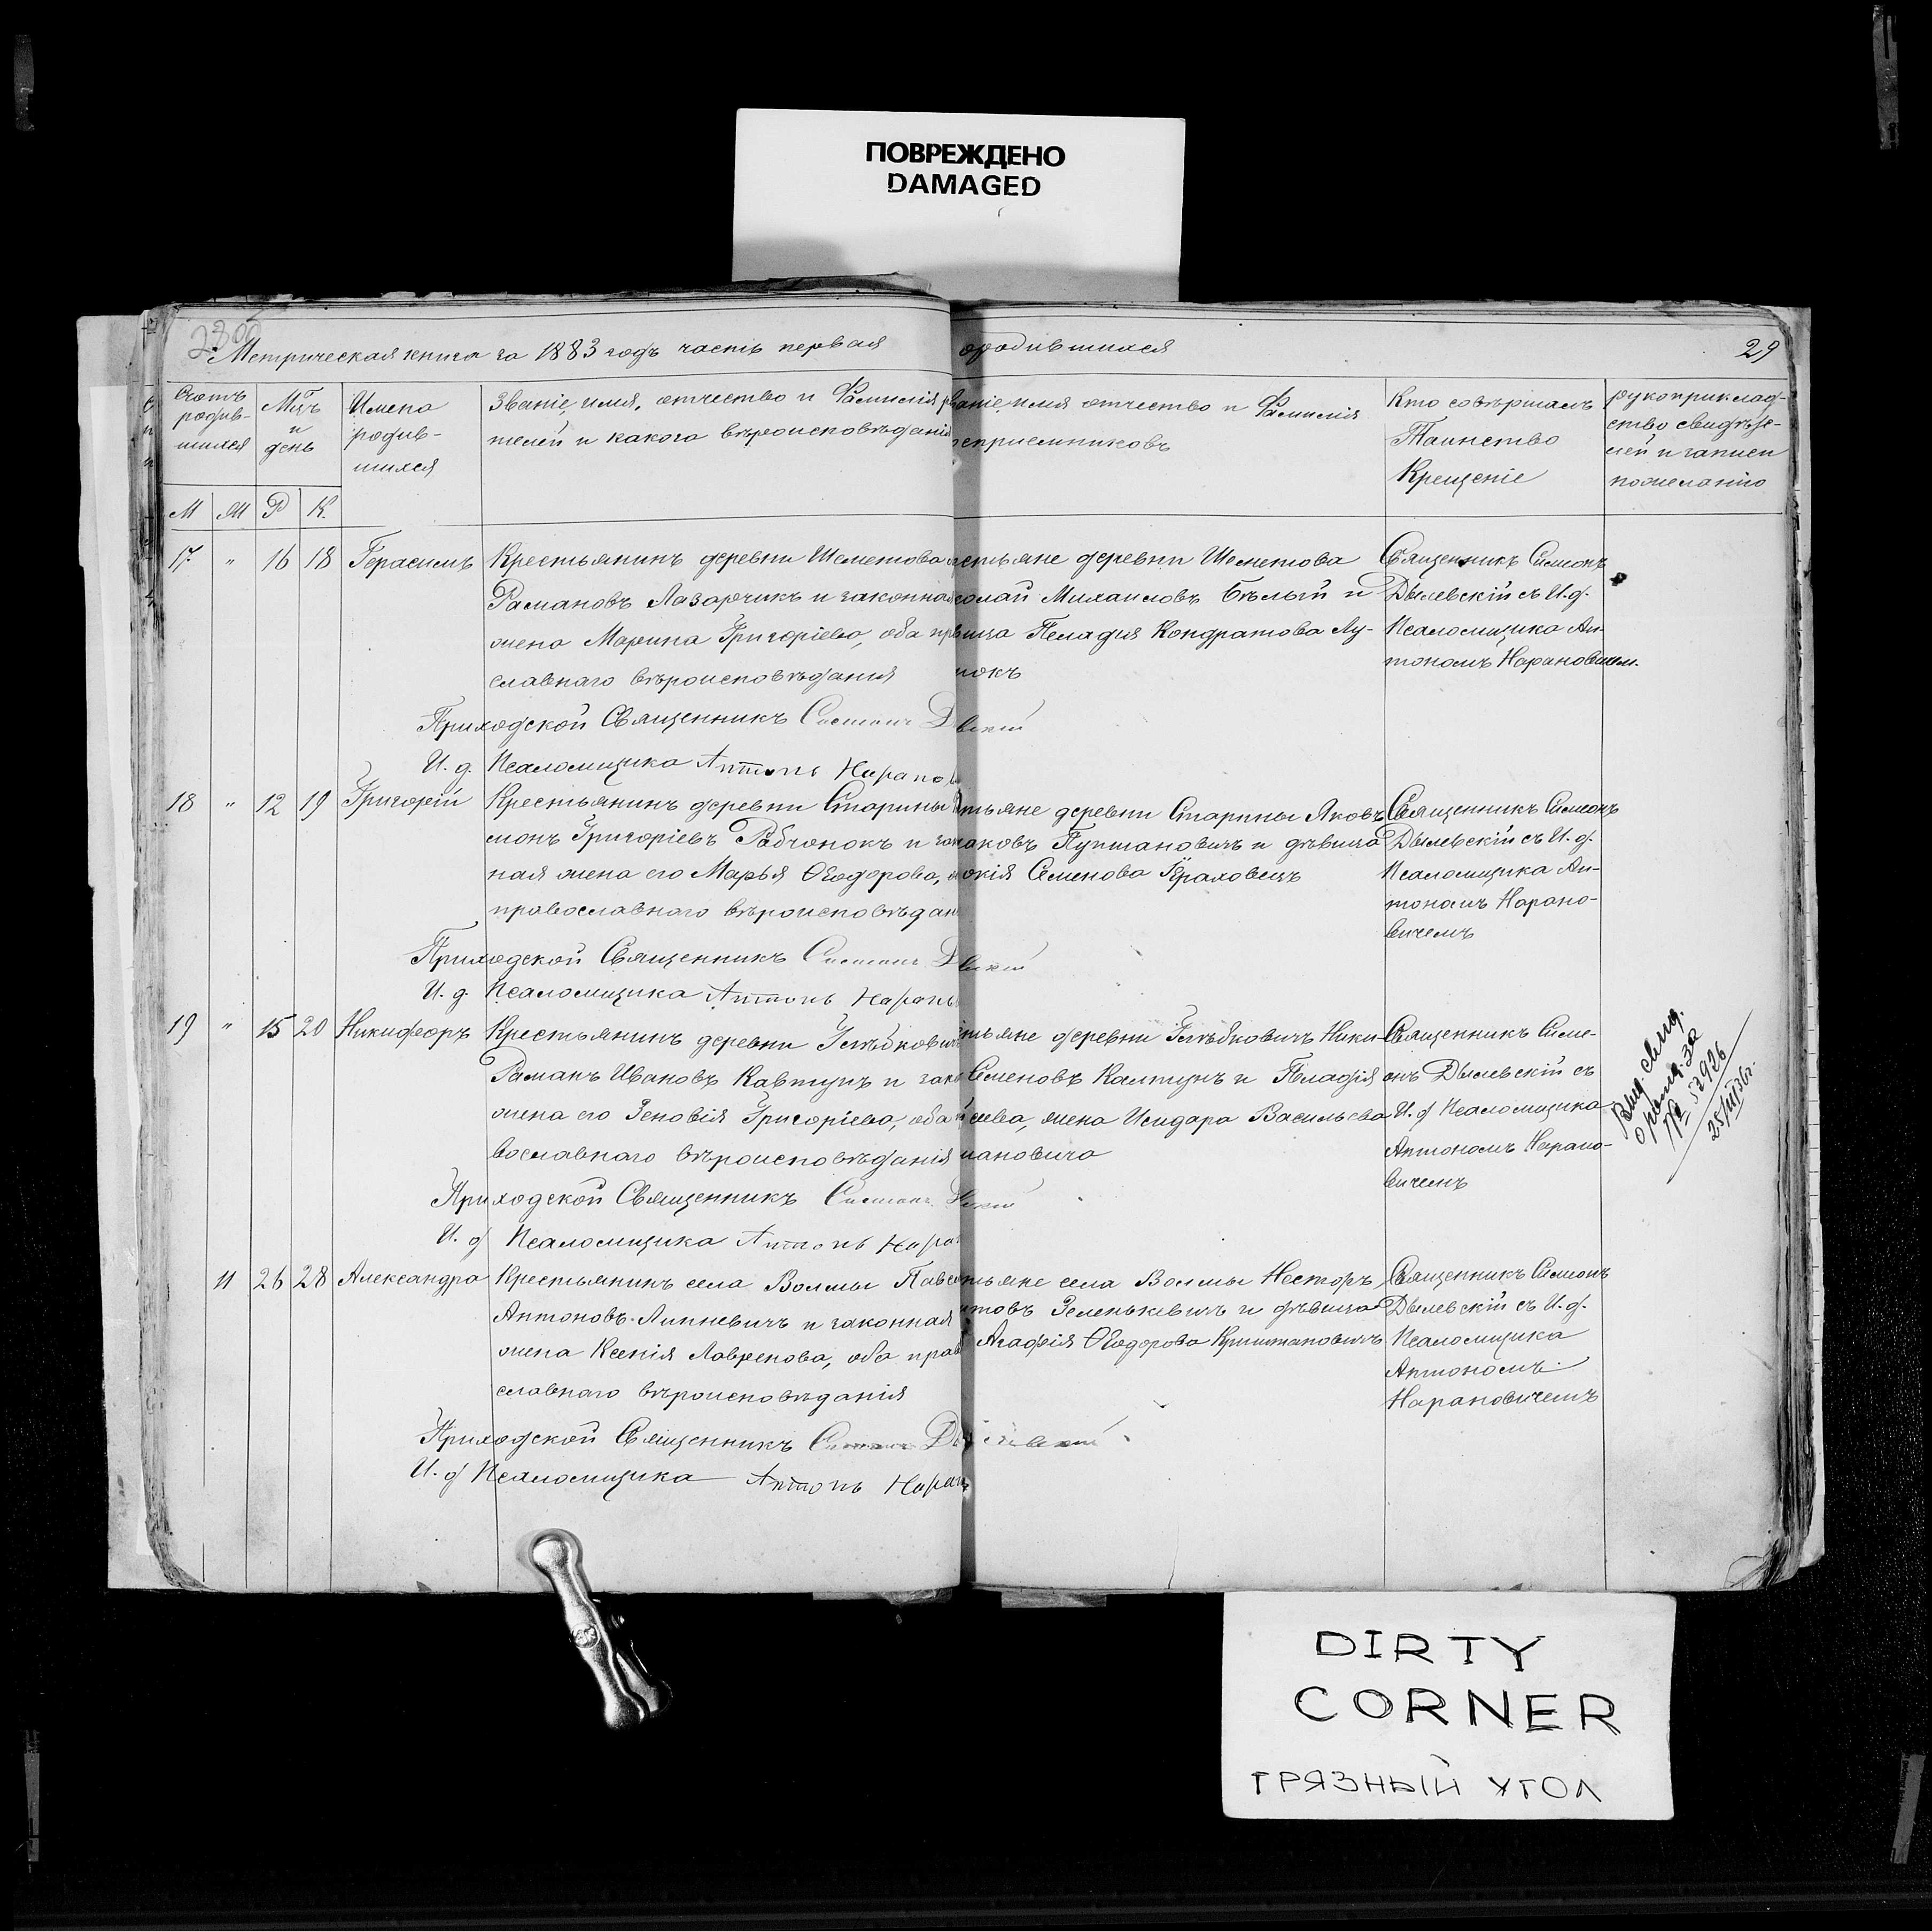 ПОВРЕЖДЕНО
DAMAGED
Метрическая книга за 1883 годъ часть первая
ородившихся
29
Счотъ родив-шихся
Мцъ и день
Имена родив-шихся
Званіе, имя, отчество и Фамилія
телей и какого вѣроисповѣданія
аніе, имя отчество и Фамилія
епріемниковъ
Кто совѣршалъ
Таинство
Крещеніе
рукоприклад-
ство свидѣте-
лей и записи
пожеланію
М М Р К.
17 " 16 18 Герасимъ
Крестьянинъ деревни Шеметова
Рамановъ Лазарчикъ и законная
жена Марина Григоріева, оба пр
славнаго вѣроисповѣданія
естьяне деревни Шеметова
солай Михаиловъ Бѣлый и
вица Пелагія Кондратова Лу-
нокъ
Священникъ Симеонъ
Дылевскій съ И.д.
Псаломщика Ан-
тономъ Нарановичем.
Приходской Священникъ Симеонъ Д вскій
И. д. Псаломщика Антонъ Нарано
18 " 12 19 Григорій
Крестьянинъ деревни Старины
монъ Григоріевъ Рабчонокъ и зако
ная жена его Марья Ѳеодорова,
православнаго вѣроисповѣдан
тьяне деревни Старины Яковъ
аковъ Пупшановичъ и дѣвица
окія Семенова Краховецъ
Священникъ Симеонъ
Дылевскій съ И.д.
Псаломщика Ан-
тономъ Нарано-
вичемъ
Приходской Священникъ Симеонъ Д вскій
И. д. Псаломщика Антонъ Наран
19 " 15 20 Никифоръ
Крестьянинъ деревни
Раманъ Ивановъ Кавтунъ и зако
жена его Зеновія Григоріева, оба
вославнаго вѣроисповѣданія
тьяне деревни Ники-
Семеновъ Калтунъ и Пелагія
еева, жена Исидара Васильева
ановича
Священникъ Симе-
онъ Дылевскій съ
И.д Псаломщика
Антономъ Нарано-
вичемъ
Выд. свид.
о рожд. за
№ 52926
25/
Приходской Священникъ Симеонъ Д скій
И. д Псаломщика Антонъ Наран
11 26 28 Александра
Крестьянинъ села Волмы Павел
Антоновъ Липневичъ и законная
жена Ксенія Лавренова, оба прав
славнаго вѣроисповѣданія
тьяне села Волмы Несторъ
товъ Зеленькевичъ и дѣвица
Агафія Ѳеодорова Криштановичъ
Священникъ Симеонъ
Дылевскій съ И.д.
Псаломщика
Антономъ
Нарановичемъ
Приходской Священникъ Симеонъ Ды левскій
И. д Псаломщика Антонъ Наран
DIRTY
CORNER
ГРЯЗНЫЙ УГОЛ